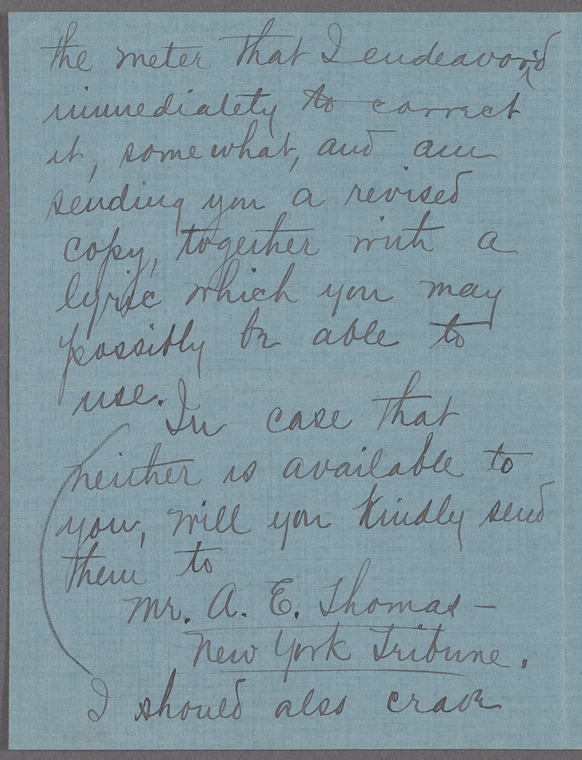 the meter that I endeavor'd
immediately to correct
it, somewhat, and am
sending you a revised
copy, together with a
lyric which you may
possibly be able to
use.
In case that
neither is available to
you, will you kindly send
them to
Mr. A. E. Thomas —
New York Tribune.
I should also crave